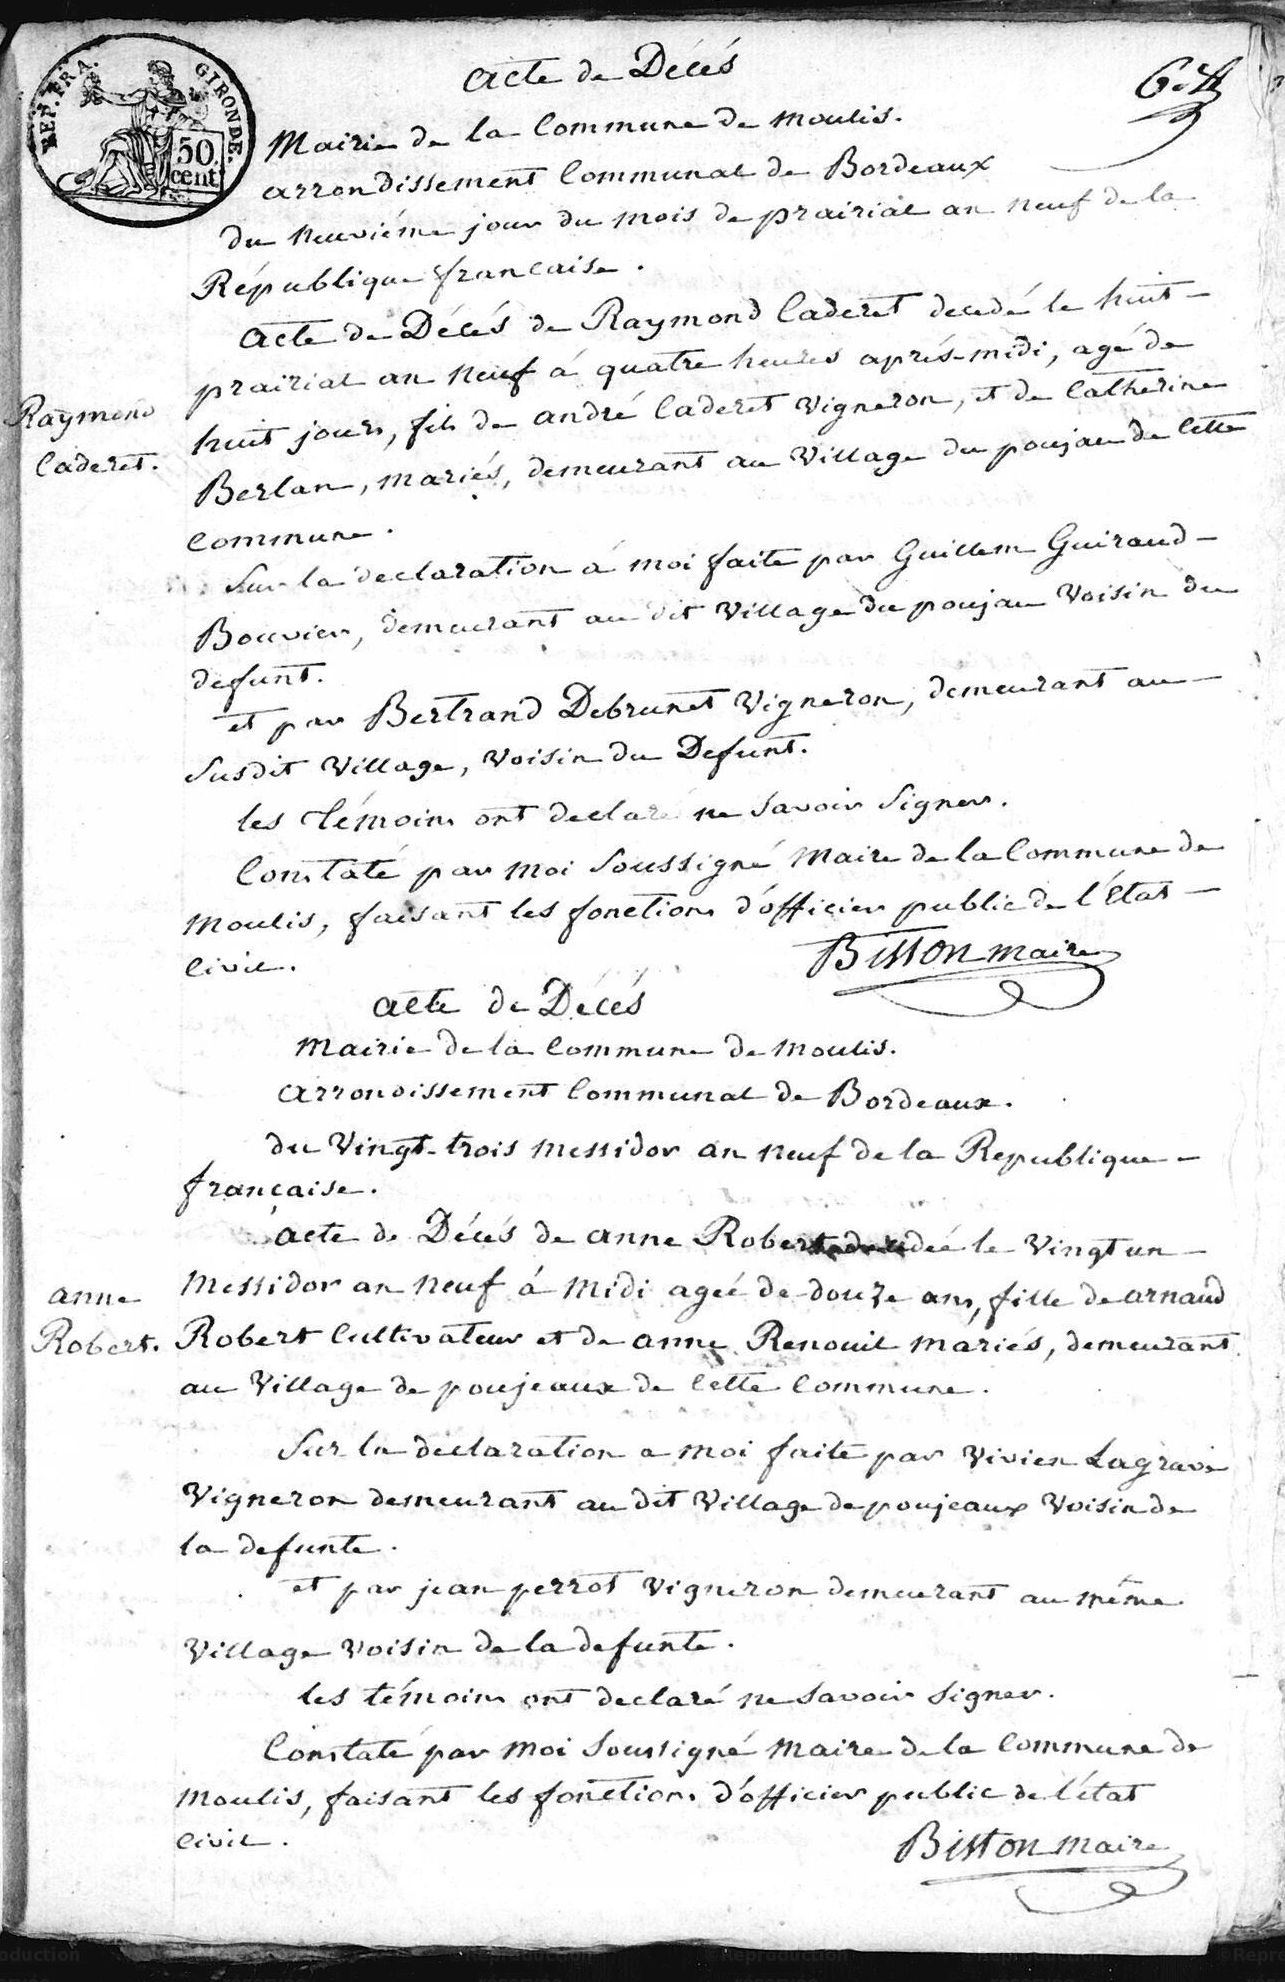 REP. FRA. GIRONDE.
50
cent
Acte de Décés
Mairie de la Commune de Moulis.
arrondissement Communal de Bordeaux
du neuviéme jour du mois de prairial an neuf de la
République francaise.
Acte de Décés de Raymond Caderet decedé le huit
prairial an neuf á quatre heures aprés-midi, agé de
Raymond
huit jours, fils de andré Caderet Vigneron, et de Catherine
Caderet.
Berlan, mariés, demeurant au Village du poujau de Cette
Commune.
Sur la declaration á moi faite par Guillem Guiraud
Bouvier, demeurant au dit Village du poujau Voisin du
defunt.
et par Bertrand Debrunet Vigneron, demeurant au
Susdit Village, Voisin du Defunt.
les témoins ont declaré ne Savoir Signer.
Constaté par moi Soussigné Maire de la Commune de
Moulis, faisant les fonctions d'officier public de l'Etat
Civil.
Bisson maire
acte de Décés
Mairie de la Commune de Moulis.
arrondissement Communal de Bordeaux.
du Vingt-trois Messidor an neuf de la Republique
française.
acte de Décés de anne Robert decedeé le Vingt un
anne
Messidor an neuf á midi ageé de douze ans, fille de arnaud
Robert.
Robert Cultivateur et de anne Renouil mariés, demeurant
au Village de poujeaux de Cette Commune.
Sur la declaration a moi faite par Vivien Lagrave
Vigneron demeurant au dit Village de poujeaux Voisin de
la defunte.
et par jean perrot Vigneron demeurant au même
Village Voisin de la defunte.
les témoins ont declaré ne Savoir Signer.
Constaté par moi Soussigné Maire de la Commune de
Moulis, faisant les fonctions d'officier public de l'état
Civil.
Bisson maire
©Reproduction